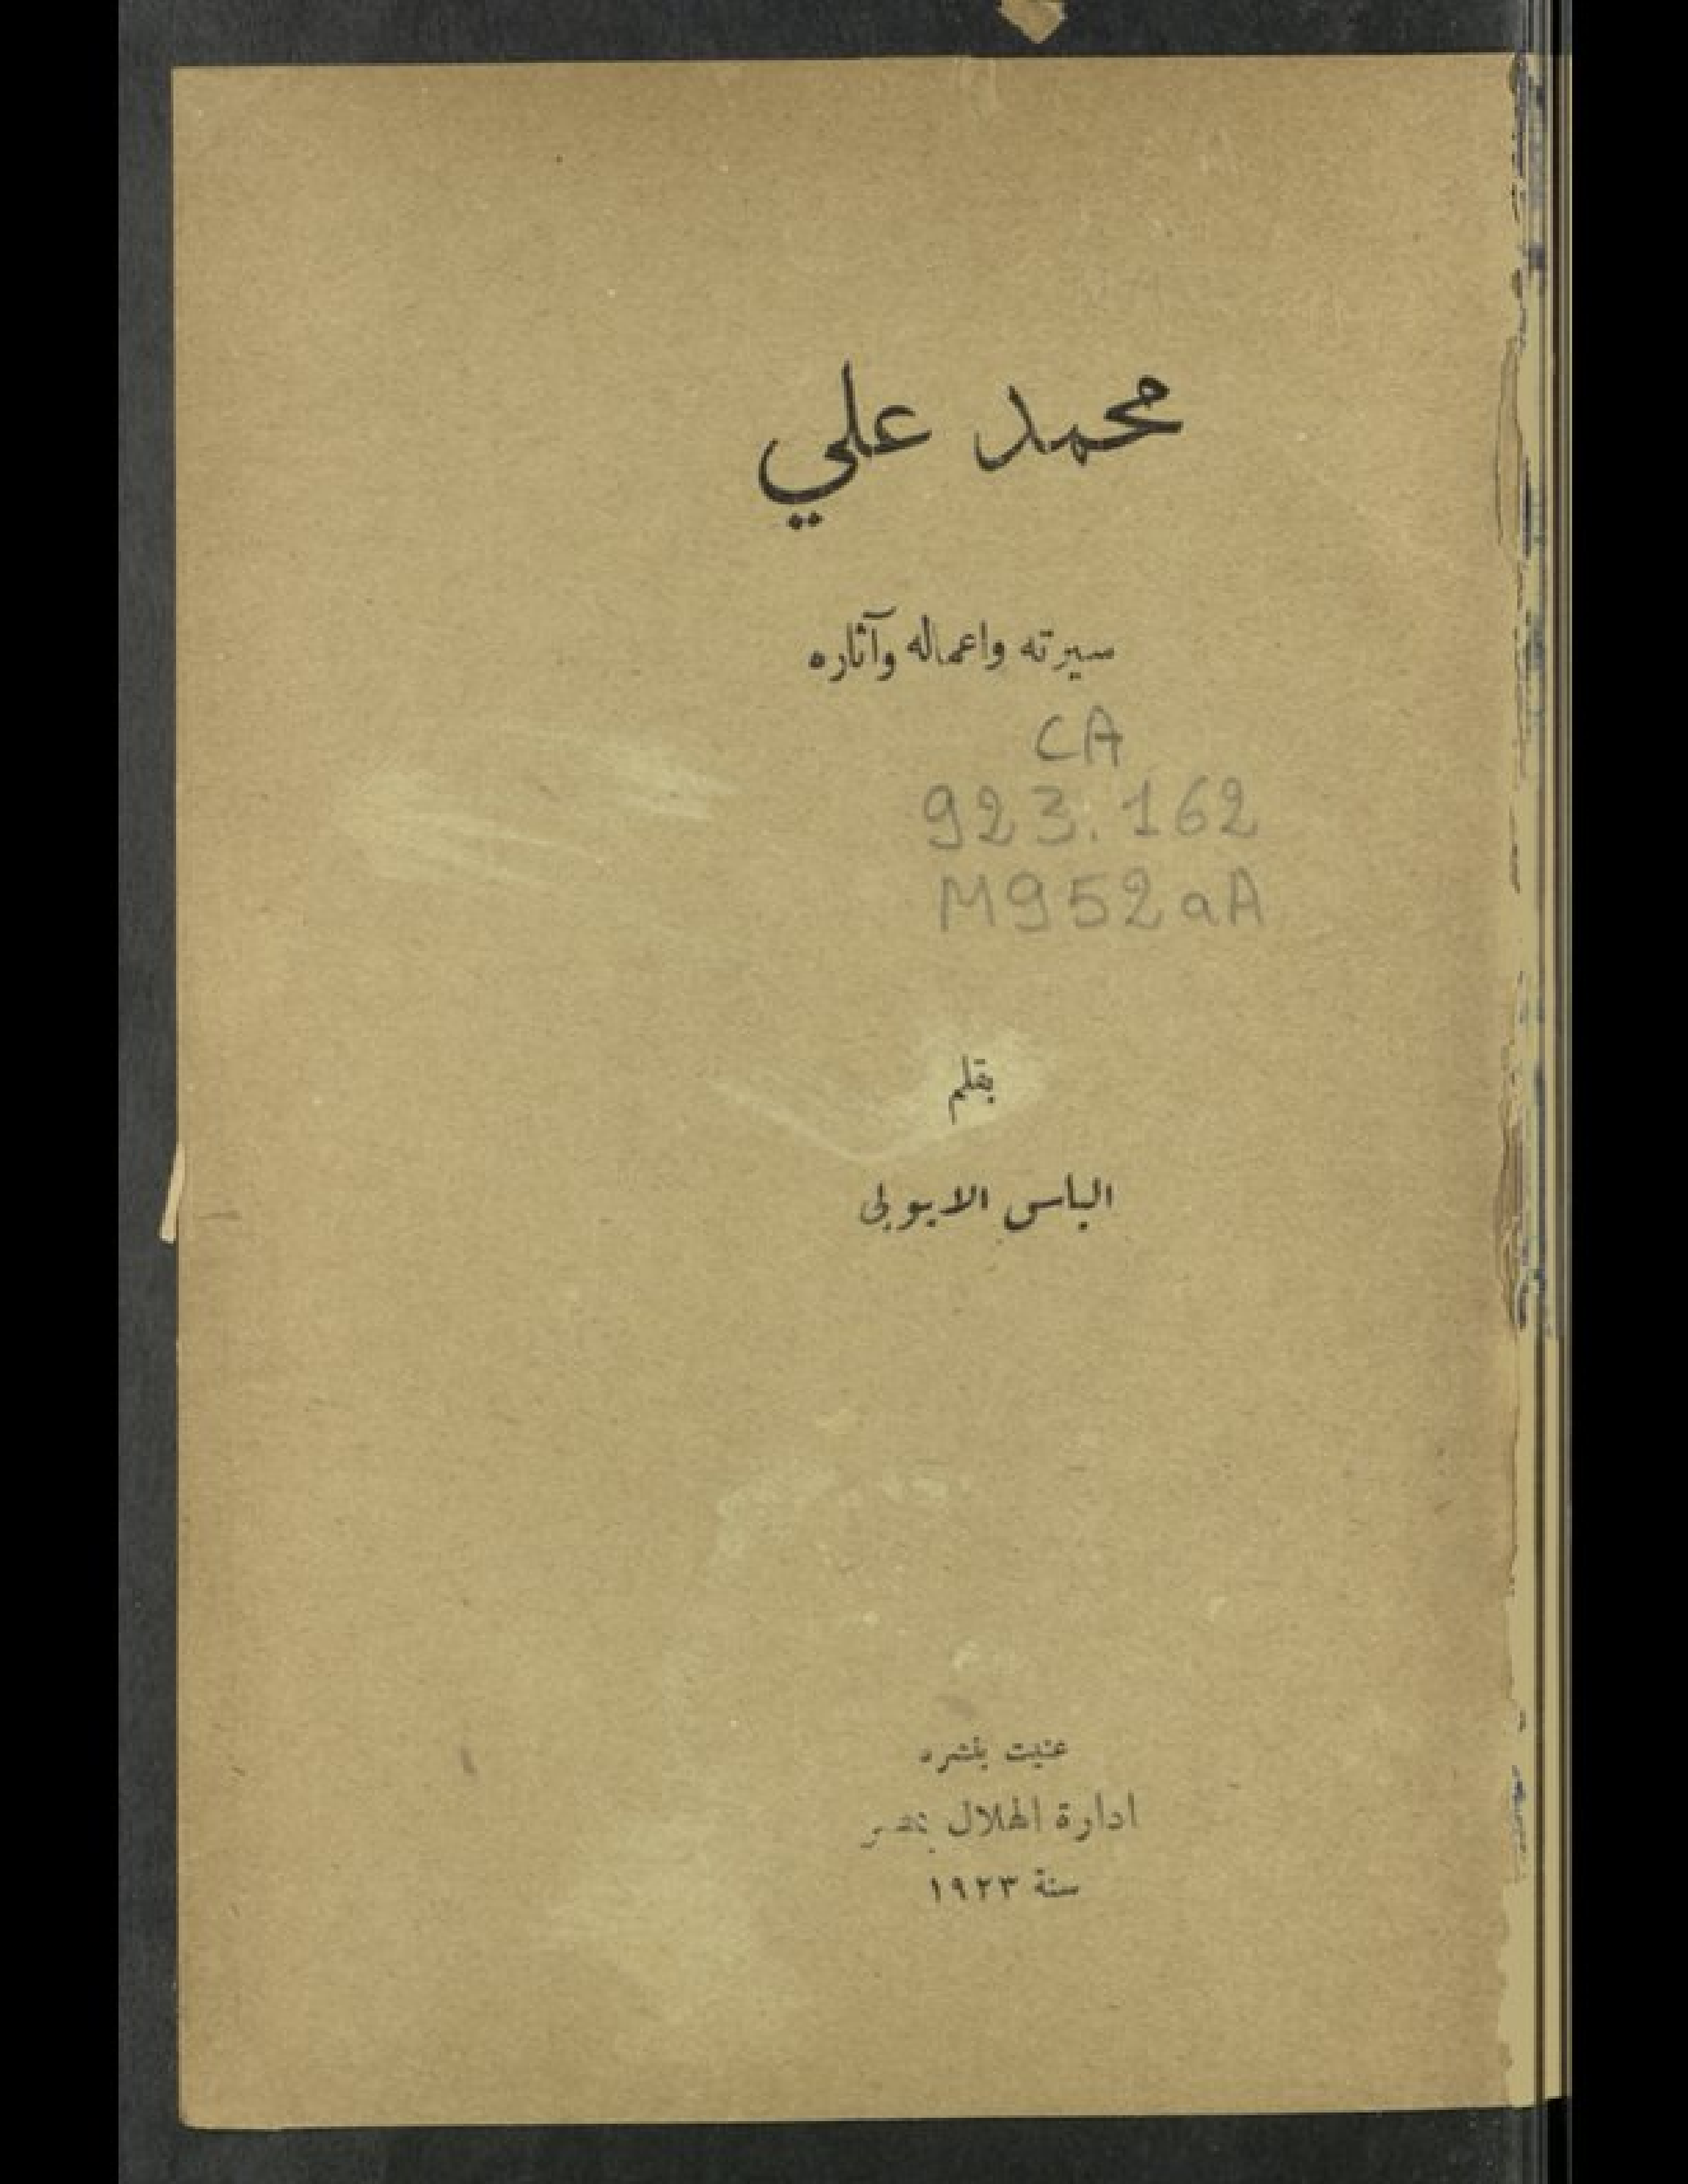 محمد علي
سيرته واعماله وآثاره
CA
923.162
M952aA
بقلم
الياس الايوبي
عنيت بنشره
ادارة الهلال بمصر
سنة ١٩٢٣